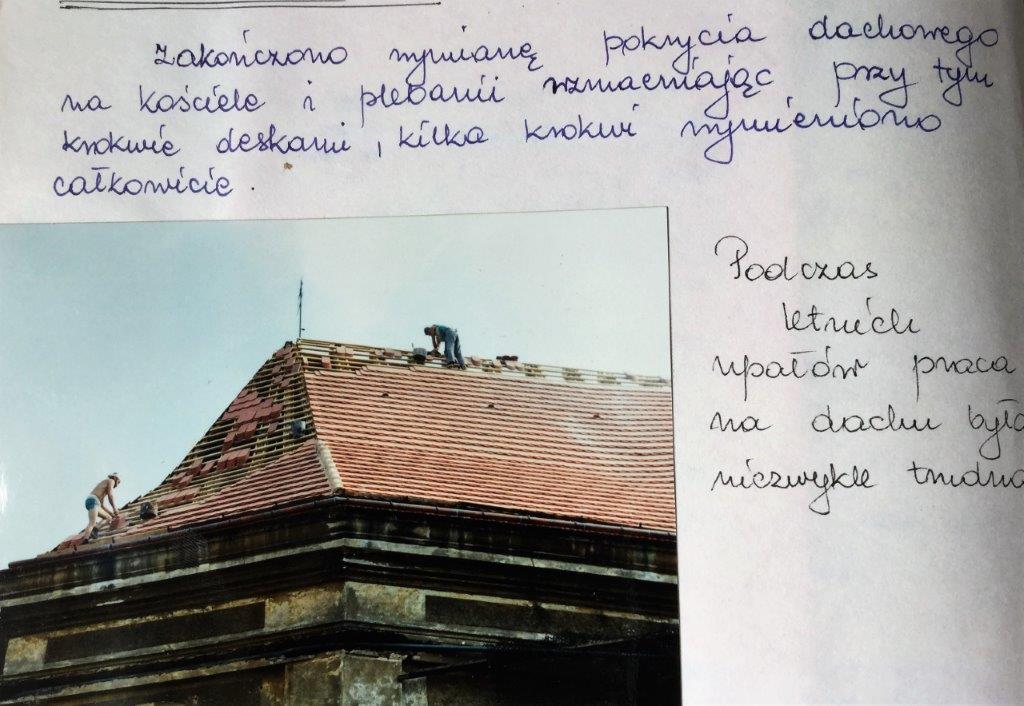 Zakończono wymianę pokrycia dachowego
na kościele i plebanii wzmacniając przy tym
krokwie deskami, kilka krokwi wymieniono
całkowicie.
Podczas
letnich
upałów praca
na dachu była
niezwykle trudna